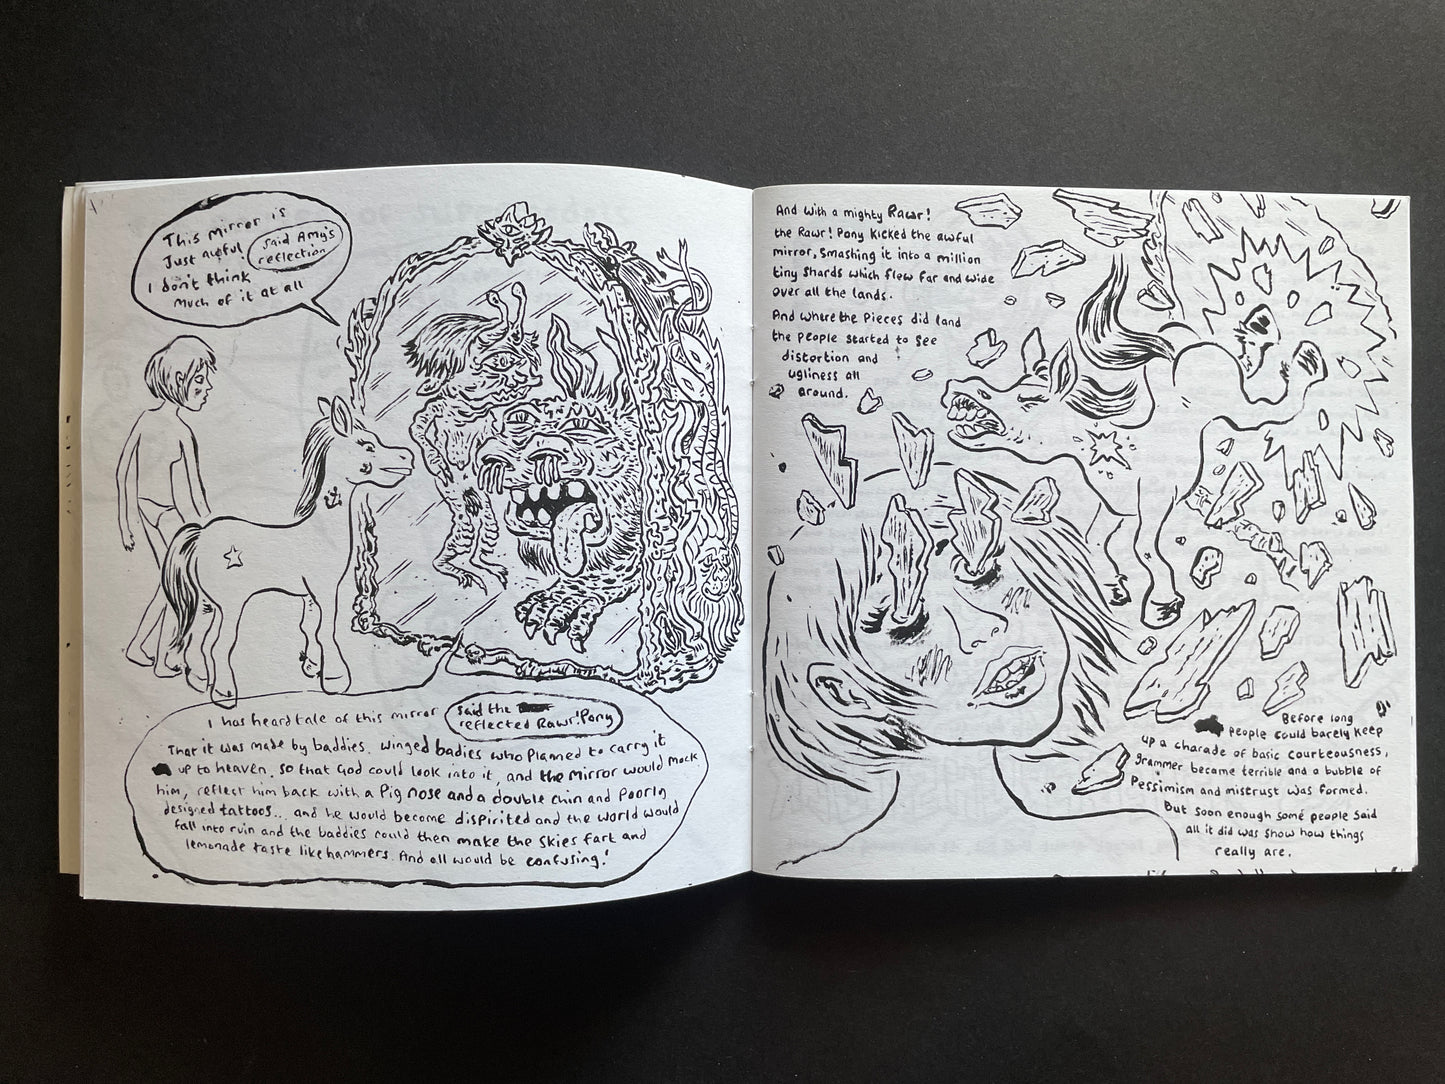 This mirror is
Just awful!
said Amy's
reflection
I don't think
much of it at all
I has heard tale of this mirror
said the
reflected Rawr!Pony
That it was made by baddies. winged badies who planned to carry it
up to heaven. so that God could look into it, and the mirror would mock
him, reflect him back with a pig nose and a double chin and poorly
designed tattoos... and he would become dispirited and the world would
fall into ruin and the baddies could then make the skies fart and
lemonade taste like hammers. And all would be confusing!
And with a mighty Rawr!
the Rawr! Pony kicked the awful
mirror, smashing it into a million
tiny shards which flew far and wide
over all the lands.
And where the pieces did land
the people started to see
distortion and
ugliness all
around.
Before long
people could barely keep
up a charade of basic courteousness,
grammer became terrible and a bubble of
pessimism and mistrust was formed.
But soon enough some people said
all it did was show how things
really are.